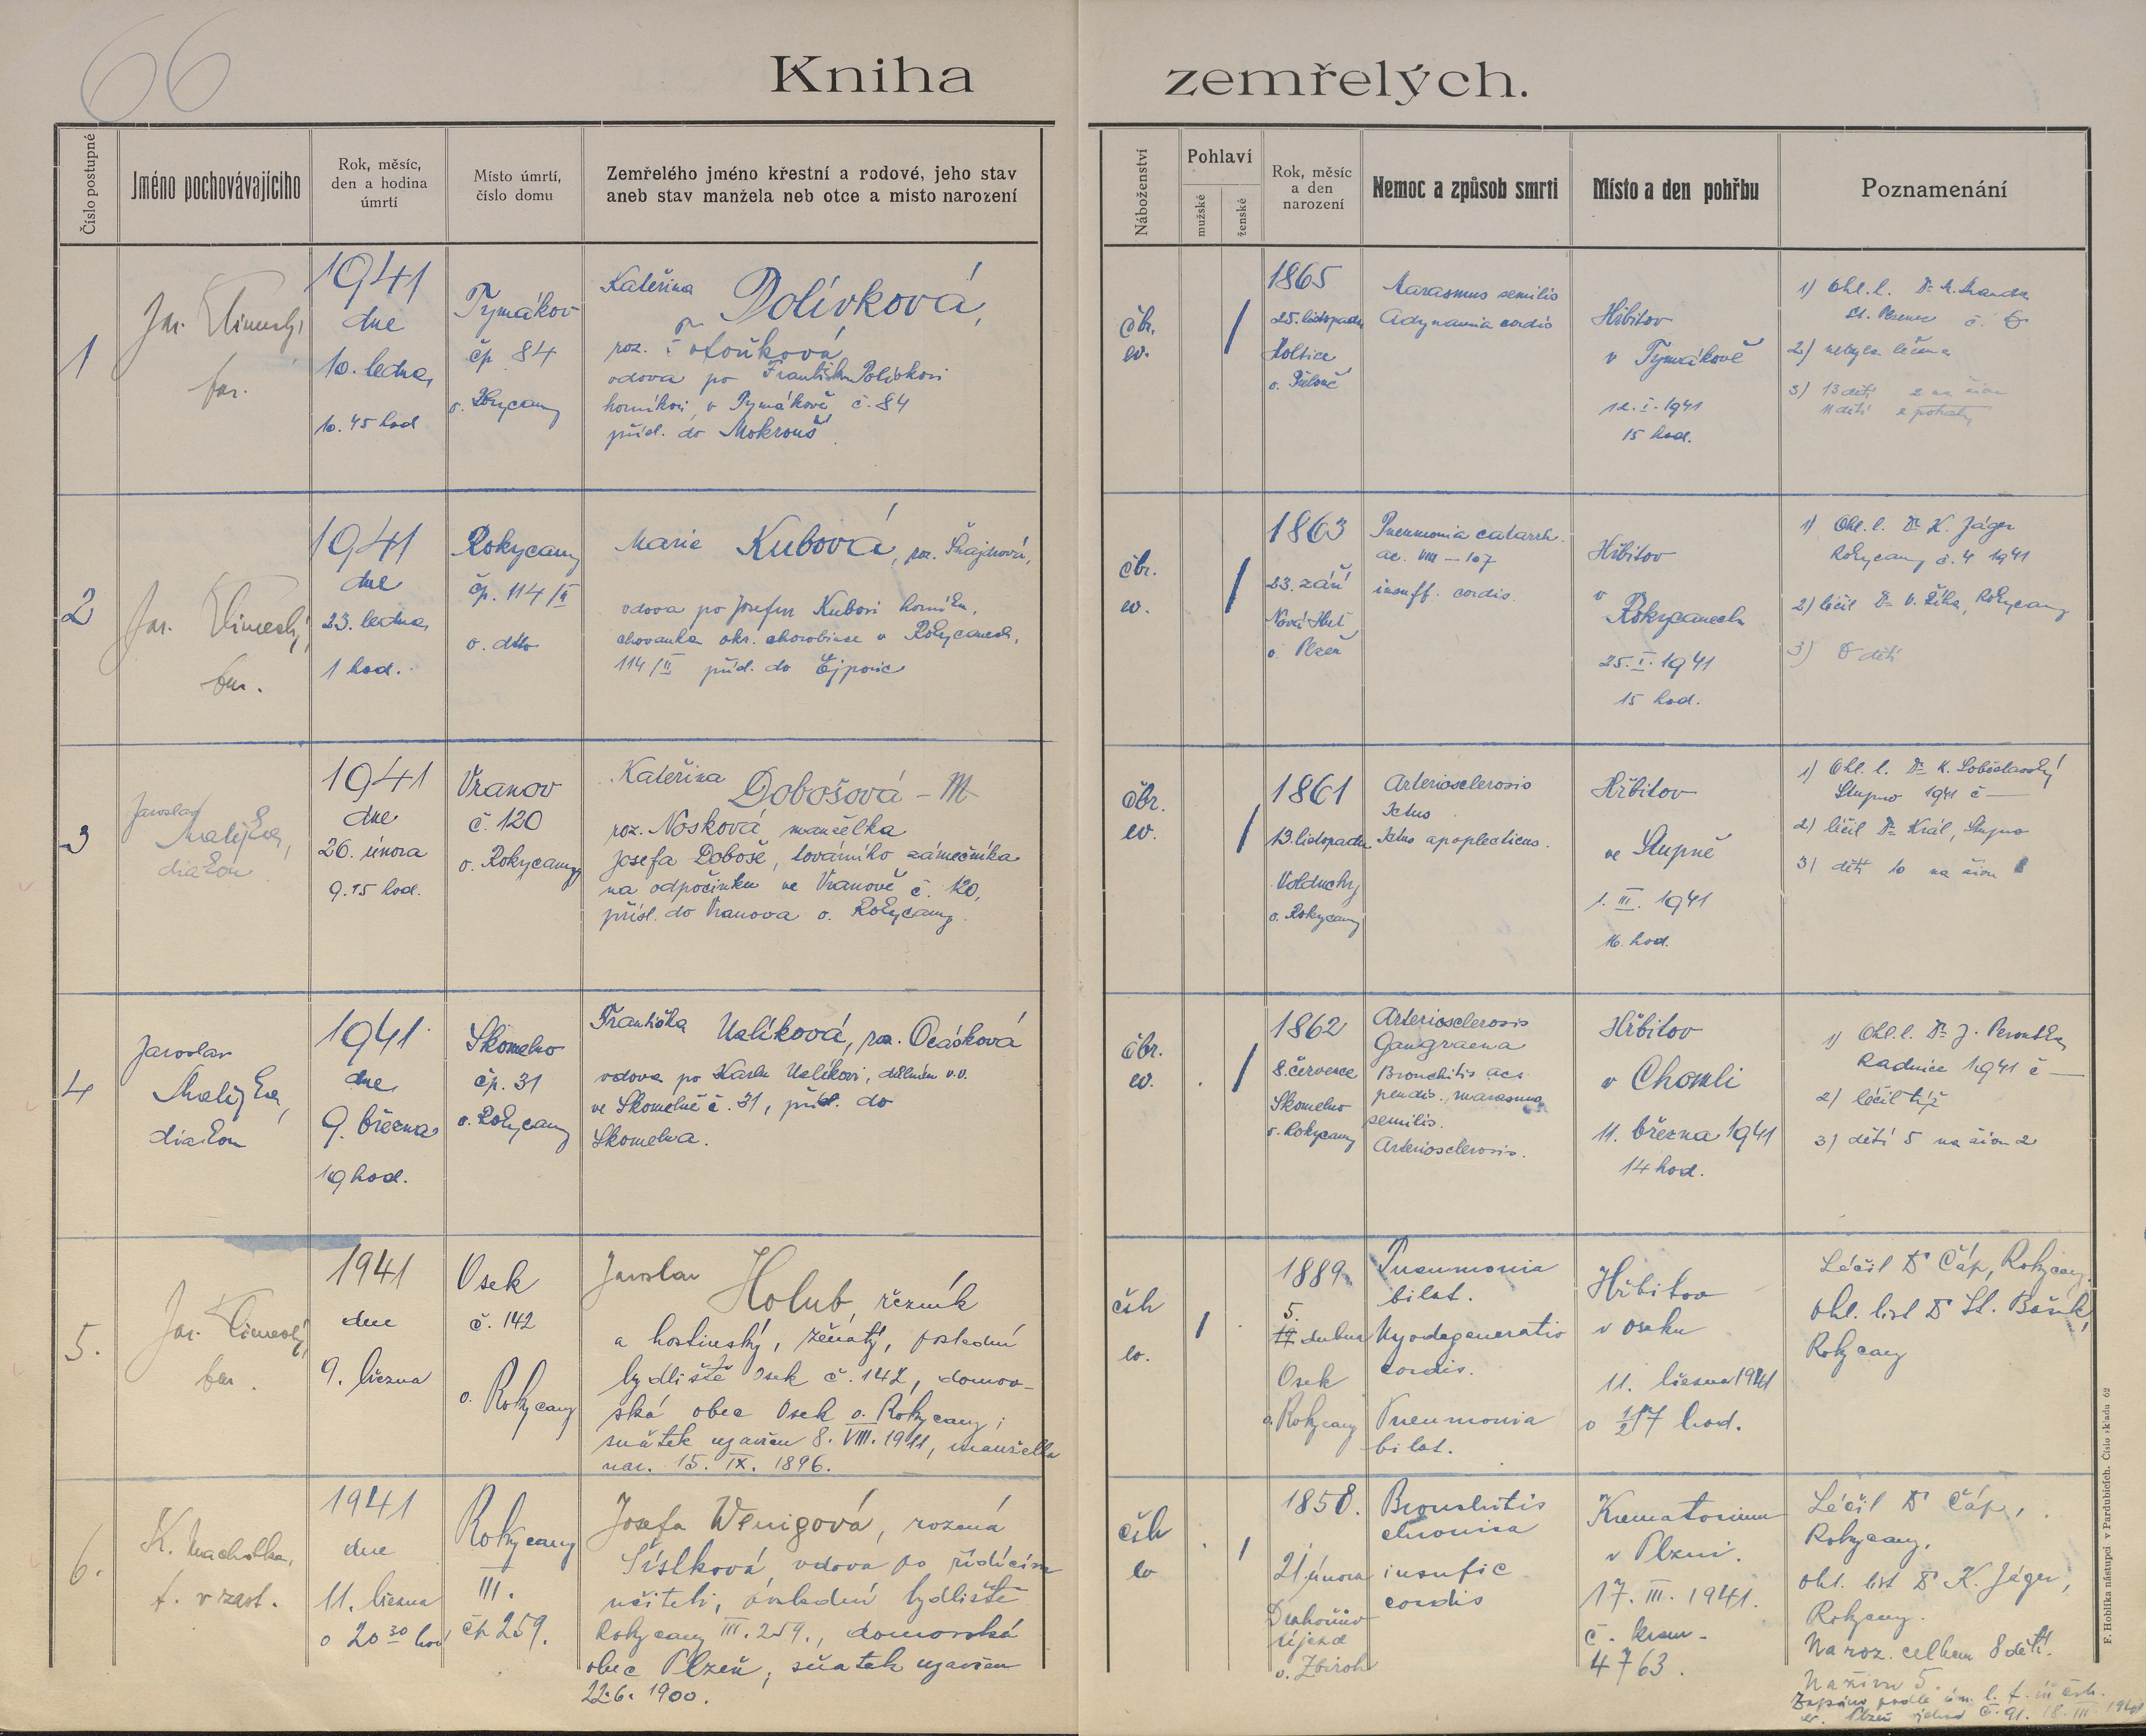 66
Kniha zemřelých.
Číslo postupné
Jméno pochovávajícího
Rok, měsíc,
den a hodina
úmrtí
Místo úmrtí,
číslo domu
Zemřelého jméno křestní a rodové, jeho stav
aneb stav manžela neb otce a místo narození
Náboženství
Pohlaví
mužské
ženské
Rok, měsíc
a den
narození
Nemoc a způsob smrti
Místo a den pohřbu
Poznamenání
1
far.
1941
dne
10. ledna
10.45 hod
Tymákov
čp. 84
o. Rokycany
Kateřina Polívková,
roz.
vdova po Františku Polívkovi
horníkovi v Tymákově č. 84
přísl. do Mokrouš
čbr.
ev.
/
1865
25. listopadu
Holtice
o.
Marasmus senilis
Adynamia cordis
Hřbitov
v Tymákově
12. I. 1941
15 hod.
1) Ohl. l. Dr
St. Plzenec č.
2) nebyla léčena
3) 13 dětí 2 na živu
11 dětí
2
Jar.
far.
1941
dne
23. ledna
1 hod.
Rokycany
čp. 114/II
o. dtto
Marie Kubová, roz. Šnajdrová,
vdova po Josefu Kubovi horníku,
chovanka okr. chorobince v Rokycanech,
114/II přísl. do Ejpovic
čbr.
ev.
/
1863
23. září
Nová Huť
o. Plzeň
Pneumonia catarrh.
ac. VIII – 107
insuff. cordis.
Hřbitov
v
Rokycanech
25. I. 1941
15 hod.
1) Ohl. l. Dr K. Jäger
Rokycany č. 4 1941
2) léčil Dr V. Říha, Rokycany
3) 8 dětí
3
Jaroslav
diakon
1941
dne
26. února
9.15 hod.
Vranov
č. 120
o. Rokycany
Kateřina Dobošová – M
roz. Nosková, manželka
Josefa Doboše, továrního zámečníka
na odpočinku ve Vranově č. 120,
přísl. do Vranova o. Rokycany.
čbr.
ev.
/
1861
13. listopadu
Volduchy
o. Rokycany
Arteriosclerosis
Ictus
Ictus apoplecticus.
Hřbitov
ve Stupně
1. III. 1941
16. hod.
1) Ohl. l. Dr K.
Stupno 1941 č –
2) léčil Dr Král, Stupno
3) dětí 10 na živu
4
Jaroslav
diakon
1941
dne
9. března
19 hod.
Skomelno
čp. 31
o. Rokycany
Františka Uzlíková, roz. Ocásková
vdova po Karlu Uzlíkovi, dělníku v.v.
ve Skomelně č. 31, přísl. do
Skomelna.
čbr.
ev.
/
1862
8. července
Skomelno
o. Rokycany
Arteriosclerosis
Gangraena
Bronchitis acs.
pendis., marasmus
senilis.
Arteriosclerosis.
Hřbitov
v Chomli
11. března 1941
14 hod.
1) Ohl. l. Dr J. Peroutka
Radnice 1941 č –
2) léčil týž
3) dětí 5 na živu 2
5.
Jar.
far.
1941
dne
9. března
Osek
č. 142
o. Rokycany
Jaroslav Holub, řezník
a hostinský, ženatý, poslední
bydliště Osek č. 142, domov-
ská obec Osek o. Rokycany;
sňatek uzavřen 8. VIII. 1911, manželka
nar. 15. IX. 1896.
čsb
ev.
/
1889
5.
dubna
Osek
o. Rokycany
Pneumonia
bilat.
Myodegeneratio
cordis.
Pneumonia
bilat.
Hřbitov
v Oseku
11. března 1941
o 1/2 17 hod.
Léčil Dr Čáp, Rokycany.
Ohl. list Dr St.
Rokycany
6.
K. Macholka,
f. v zast.
1941
dne
11. března
o 20 30 hod
Rokycany
III.
čp 259.
Josefa Wenigová, rozená
vdova po řídícím
učiteli, poslední bydliště
Rokycany III. 259., domovská
obec Plzeň, sňatek uzavřen
22.6. 1900.
čsb
ev
/
1858.
21. února
Drahoňův
újezd
o. Zbiroh
Bronchitis
chronica
insufic
cordis
Krematorium
v Plzni.
17. III. 1941.
č. krem.
4763.
Léčil Dr Čáp,
Rokycany,
ohl. list Dr K. Jäger,
Rokycany.
Naroz. celkem 8 dětí.
Na živu 5.
Zapsáno podle úm. l. f. úř. čsb.
ev. Plzeň č. 91. 18. III. 1941
F. Hoblíka nástupci v Pardubicích. Číslo skladu 62